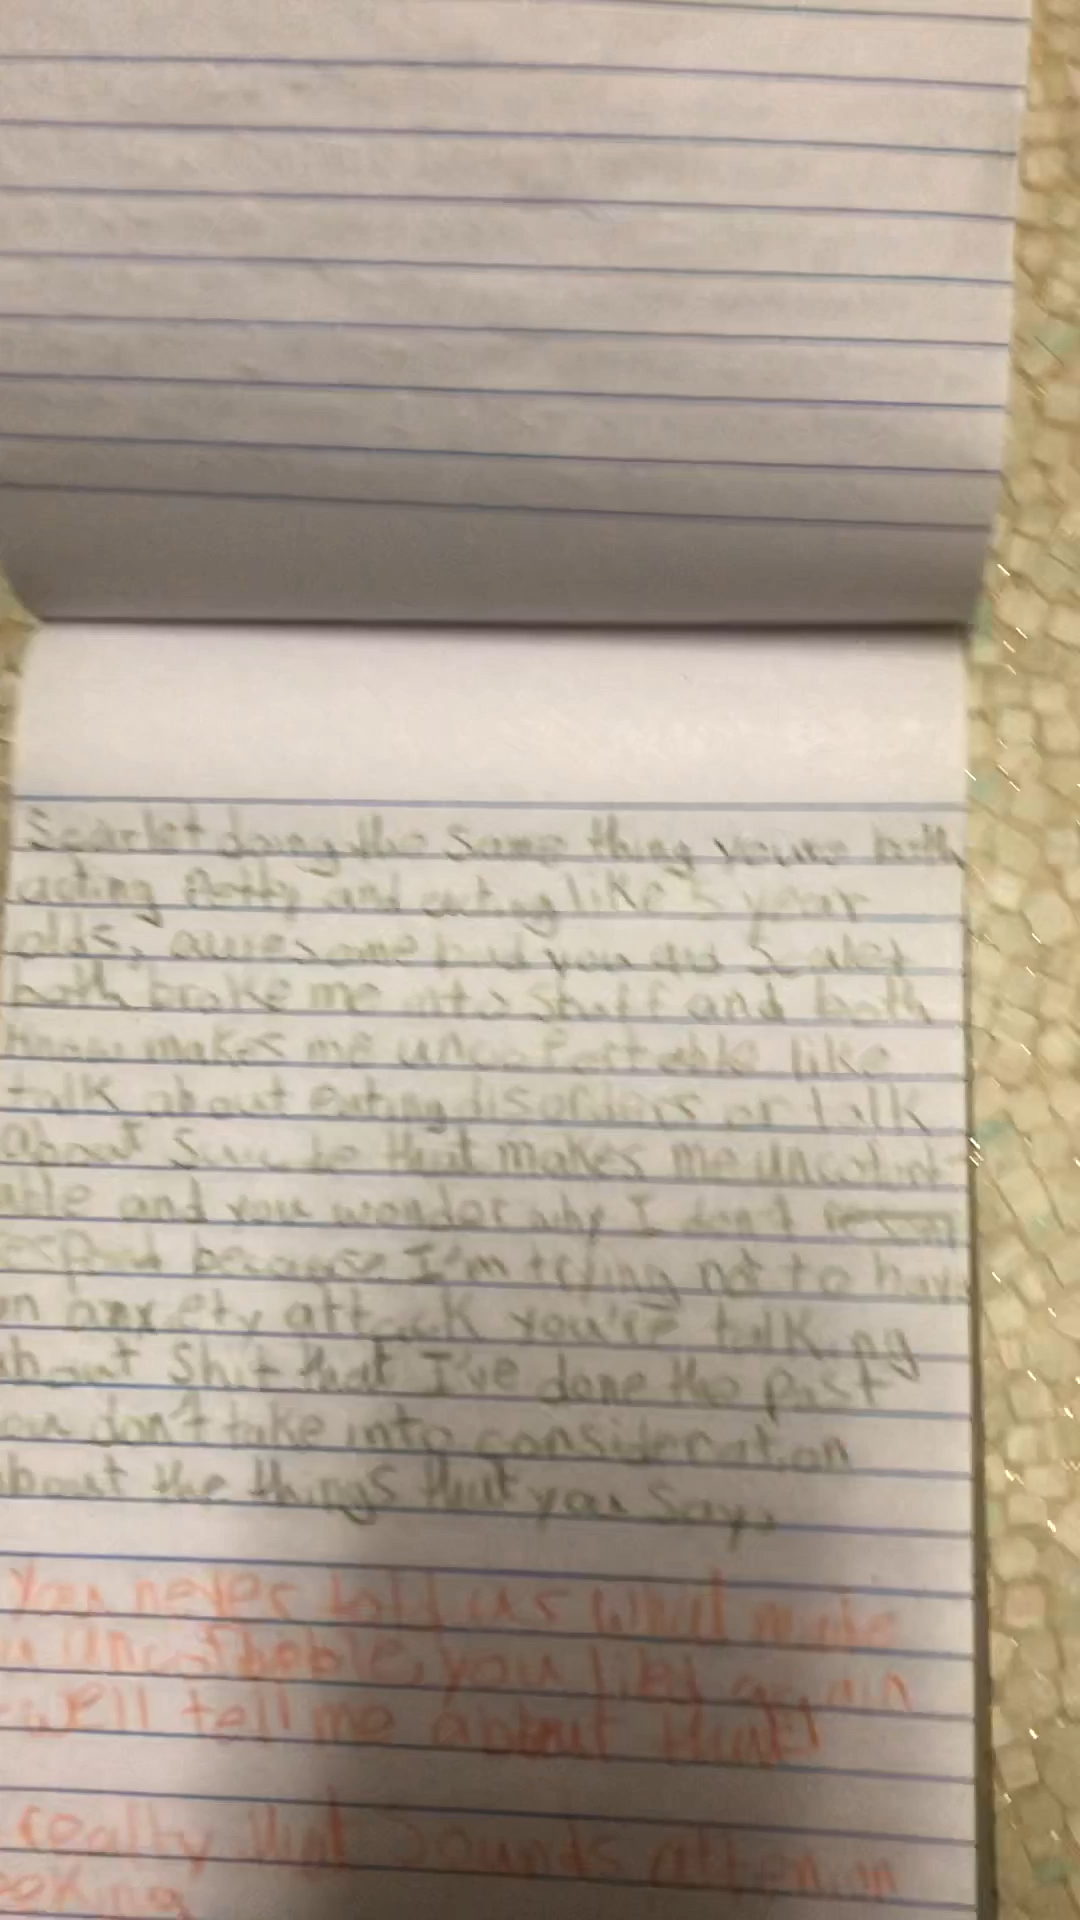 Scarlet doing the same thing youre both
acting Petty and acting like 5 year
olds, awesome but you and
both broke me into stuff and both
know makes me uncofertable like
talk about eating disorders or talk
about that makes me uncofert
able and you wonder why I don't
respond because I'm trying not to have
an anxiety attack you're talking
about Shit that I've done the past
you don't take into consideration
about the things that you say.
You never told us what make
you, you again
well tell me about that
really that sounds